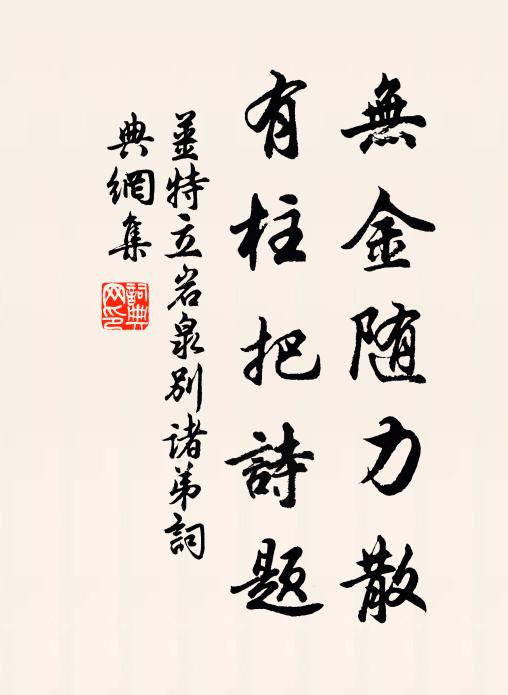 無金随力散
有柱把詩題
薑特立岩泉别諸弟詞
典網集
詞典
网印